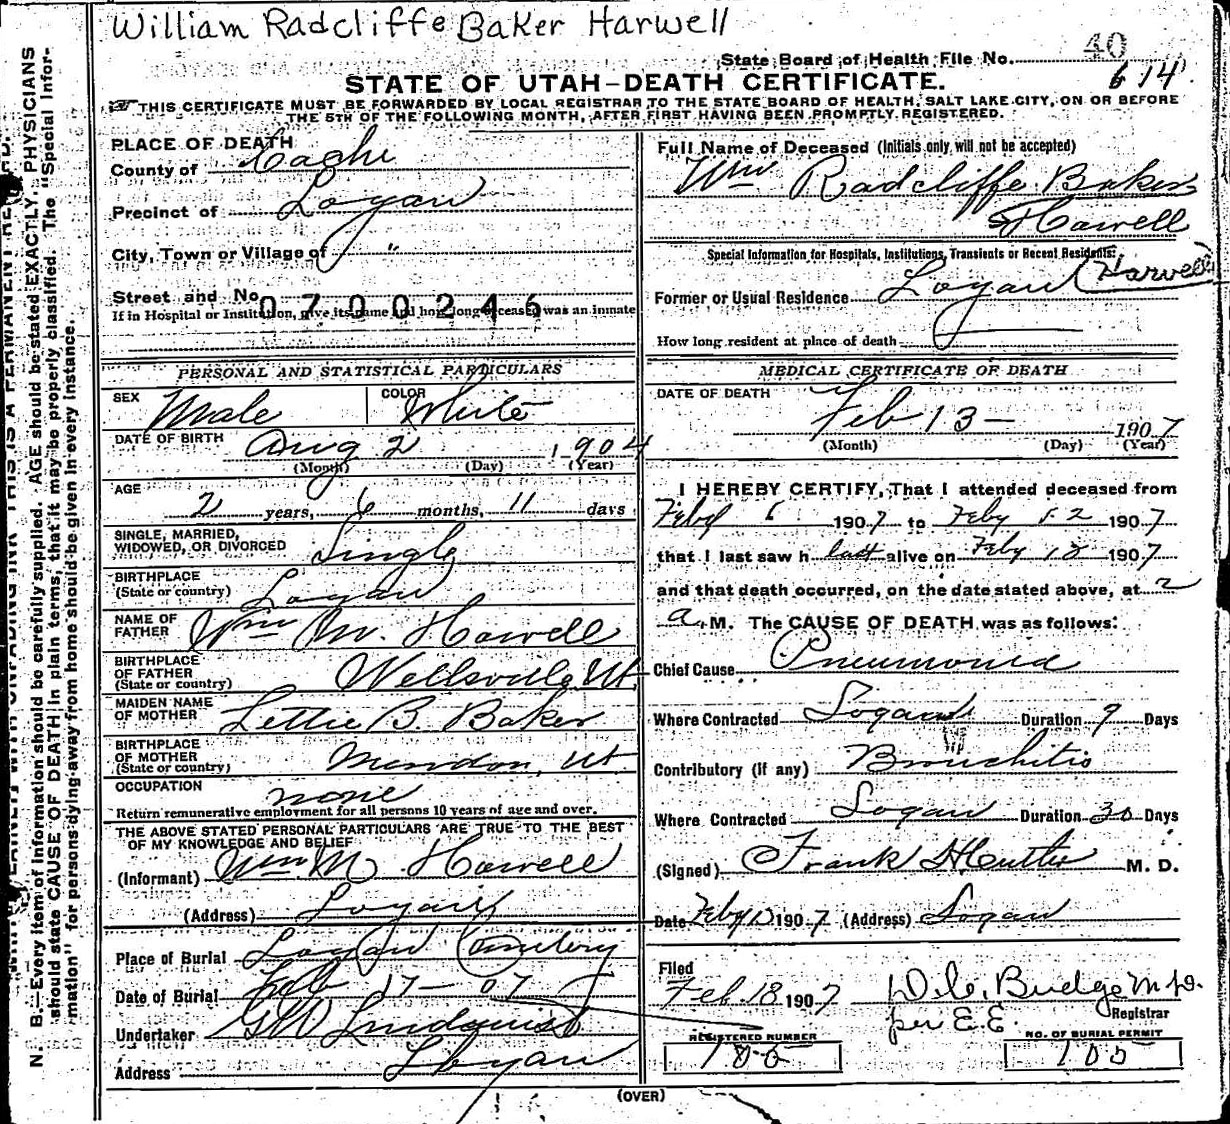 William Radcliffe Baker Harwell
State Board of Health File No. 40
614
STATE OF UTAH—DEATH CERTIFICATE.
THIS CERTIFICATE MUST BE FORWARDED BY LOCAL REGISTRAR TO THE STATE BOARD OF HEALTH, SALT LAKE CITY, ON OR BEFORE
THE 5TH OF THE FOLLOWING MONTH, AFTER FIRST HAVING BEEN PROMPTLY REGISTERED.
N. B.—Every item of Information should be carefully supplied. AGE should be stated EXACTLY. PHYSICIANS
should state CAUSE OF DEATH in plain terms, that it may be properly classified. The "Special Infor-
mation" for persons dying away from home should be given in every instance.
PLACE OF DEATH
County of Cache
Precinct of Logan
City, Town or Village of "
Street and No.
0700246
If in Hospital or Institution, give its name and how long deceased was an inmate
PERSONAL AND STATISTICAL PARTICULARS
SEX Male COLOR White
DATE OF BIRTH Aug 2 1904
(Month) (Day) (Year)
AGE 2 years, 6 months, 11 days
SINGLE, MARRIED,
WIDOWED, OR DIVORCED Single
BIRTHPLACE
(State or country) Logan
NAME OF
FATHER Wm M. Harwell
BIRTHPLACE
OF FATHER
(State or country) Wellsville Ut
MAIDEN NAME
OF MOTHER Lettie B. Baker
BIRTHPLACE
OF MOTHER
(State or country) Mendon, Ut
OCCUPATION none
Return remunerative employment for all persons 10 years of age and over.
THE ABOVE STATED PERSONAL PARTICULARS ARE TRUE TO THE BEST
OF MY KNOWLEDGE AND BELIEF
(Informant) Wm. M. Harwell
(Address) Logan
Place of Burial Logan Cemetery
Date of Burial Feb 17 — 07
Undertaker G W Lindquist
Address Logan
Full Name of Deceased (Initials only will not be accepted)
Wm Radcliffe Baker
Harwell
Special Information for Hospitals, Institutions, Transients or Recent Residents:
(Harwell)
Former or Usual Residence Logan
How long resident at place of death
MEDICAL CERTIFICATE OF DEATH
DATE OF DEATH
Feb 13 — 1907
(Month) (Day) (Year)
I HEREBY CERTIFY, That I attended deceased from
6 1907 to Feby 12 1907
that I last saw h alive on Feby 12 1907
and that death occurred, on the date stated above, at 2
a. M. The CAUSE OF DEATH was as follows:
Chief Cause Pneumonia
Where Contracted Logan Duration 9 Days
Contributory (if any) Bronchitis
Where Contracted Logan Duration 30 Days
(Signed) Frank M. D.
Date Feby 1907 (Address) Logan
Filed
Feb. 18 1907 Budge M.D.
Registrar
per E.E.
REGISTERED NUMBER NO. OF BURIAL PERMIT
105
(OVER)